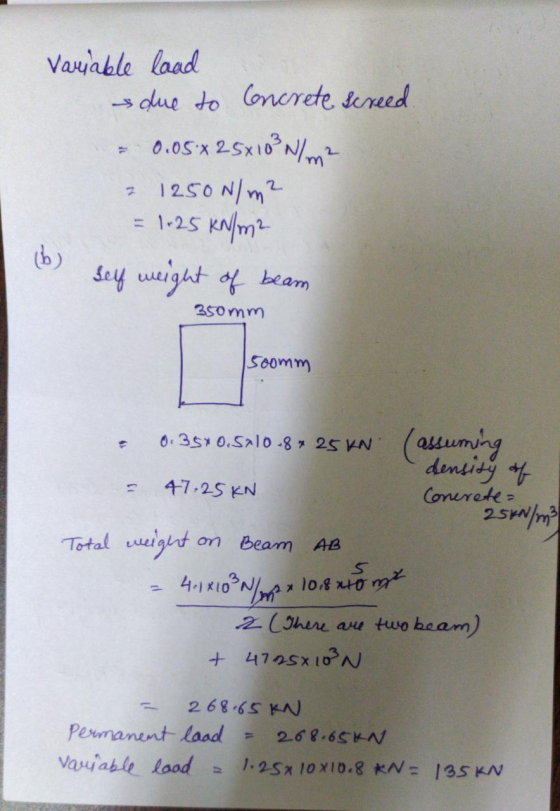 Variable load
→ due to Concrete screed
= 0.05 x 25x10³ N/m²
= 1250 N/m²
= 1.25 KN/m²
(b)
self weight of beam
350mm
500mm
= 0.35x 0.5x10.8 x 25 KN (assuming density of Concrete = 25KN/m³)
= 47.25 KN
Total weight on Beam AB
= 4.1x10³N/m² x 10.8 x 10 m²
5
2 (There are two beam)
+ 47.25x10³N
= 268.65 KN
Permanent load = 268.65KN
Variable load = 1.25x 10x10.8 KN = 135 KN